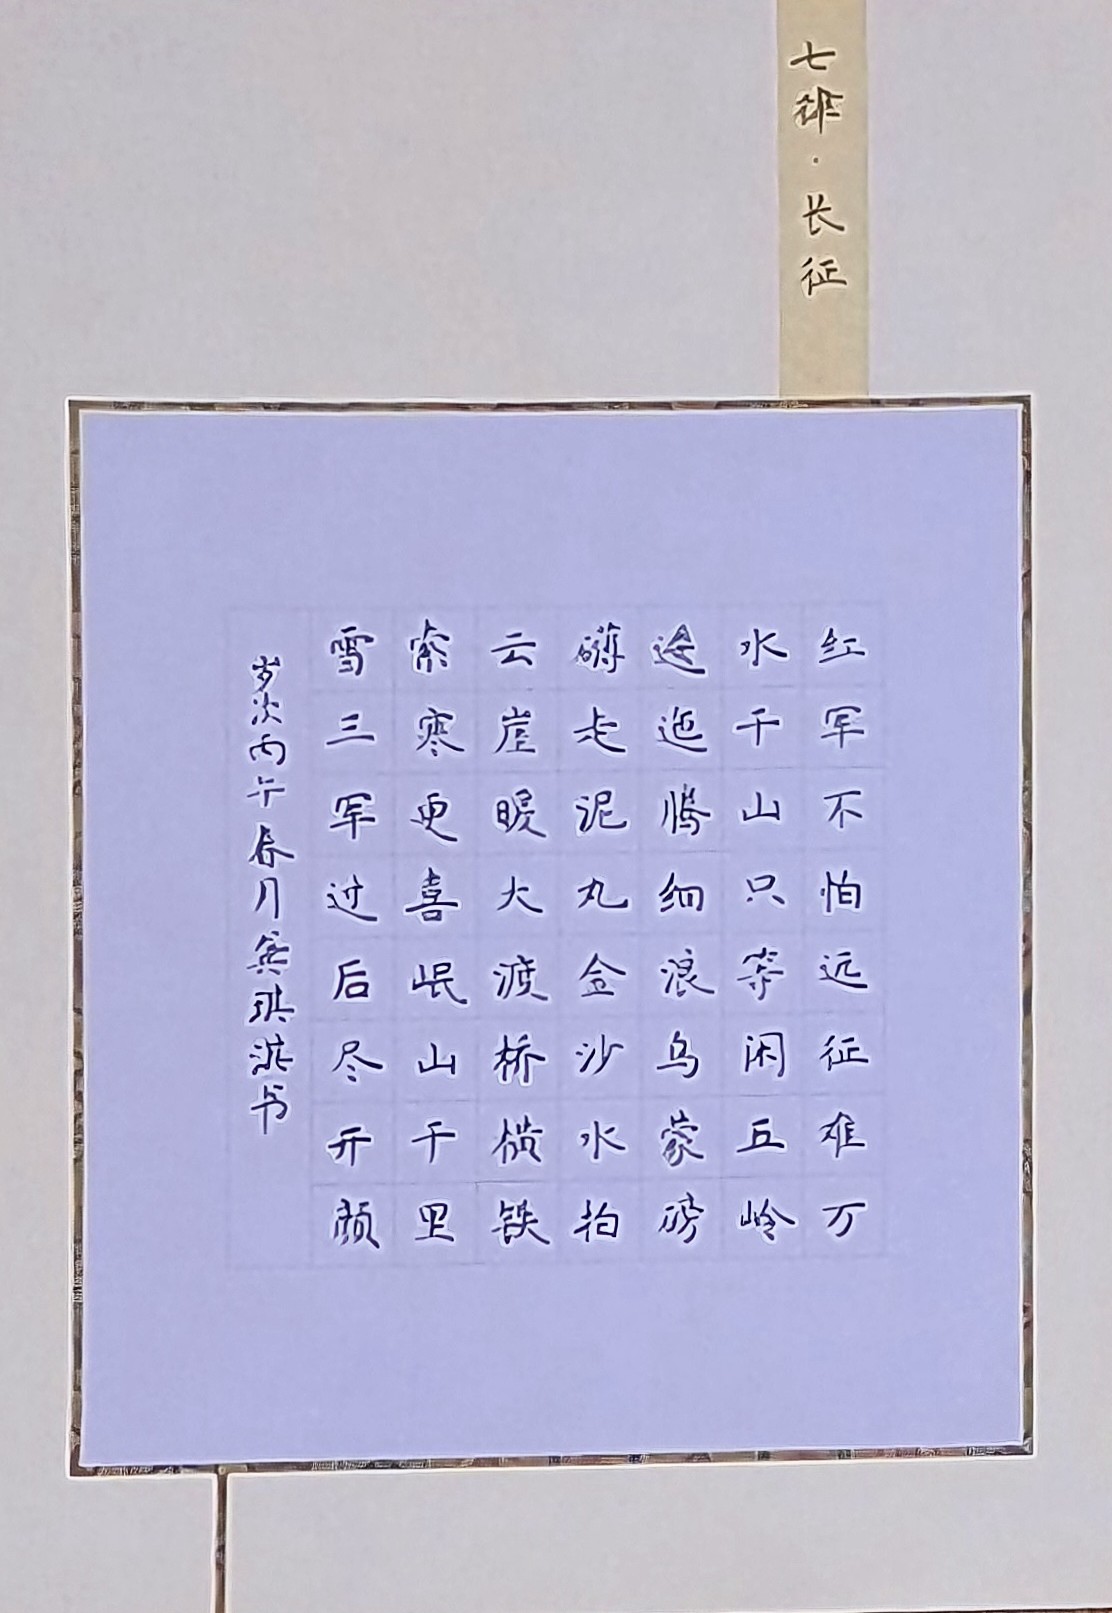 七律·长征
红军不怕远征难万
水千山只等闲五岭
逶迤腾细浪乌蒙磅
礴走泥丸金沙水拍
云崖暖大渡桥横铁
索寒更喜岷山千里
雪三军过后尽开颜
岁次丙午春月琪书